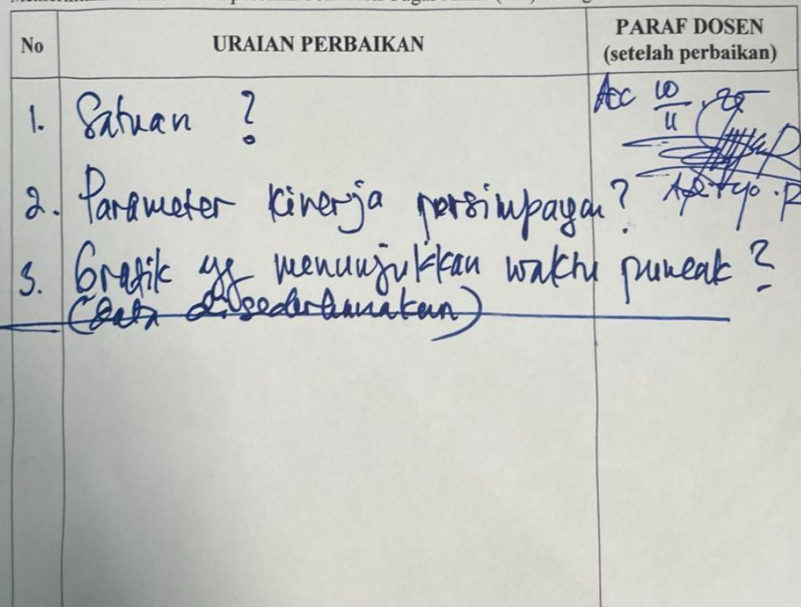 No URAIAN PERBAIKAN PARAF DOSEN
(setelah perbaikan)
Acc 10/11.25
1. Satuan ?
2. Parameter kinerja persimpagan?
3. Grafik yg menunjukkan waktu puncak ?
(Data disederhanakan)